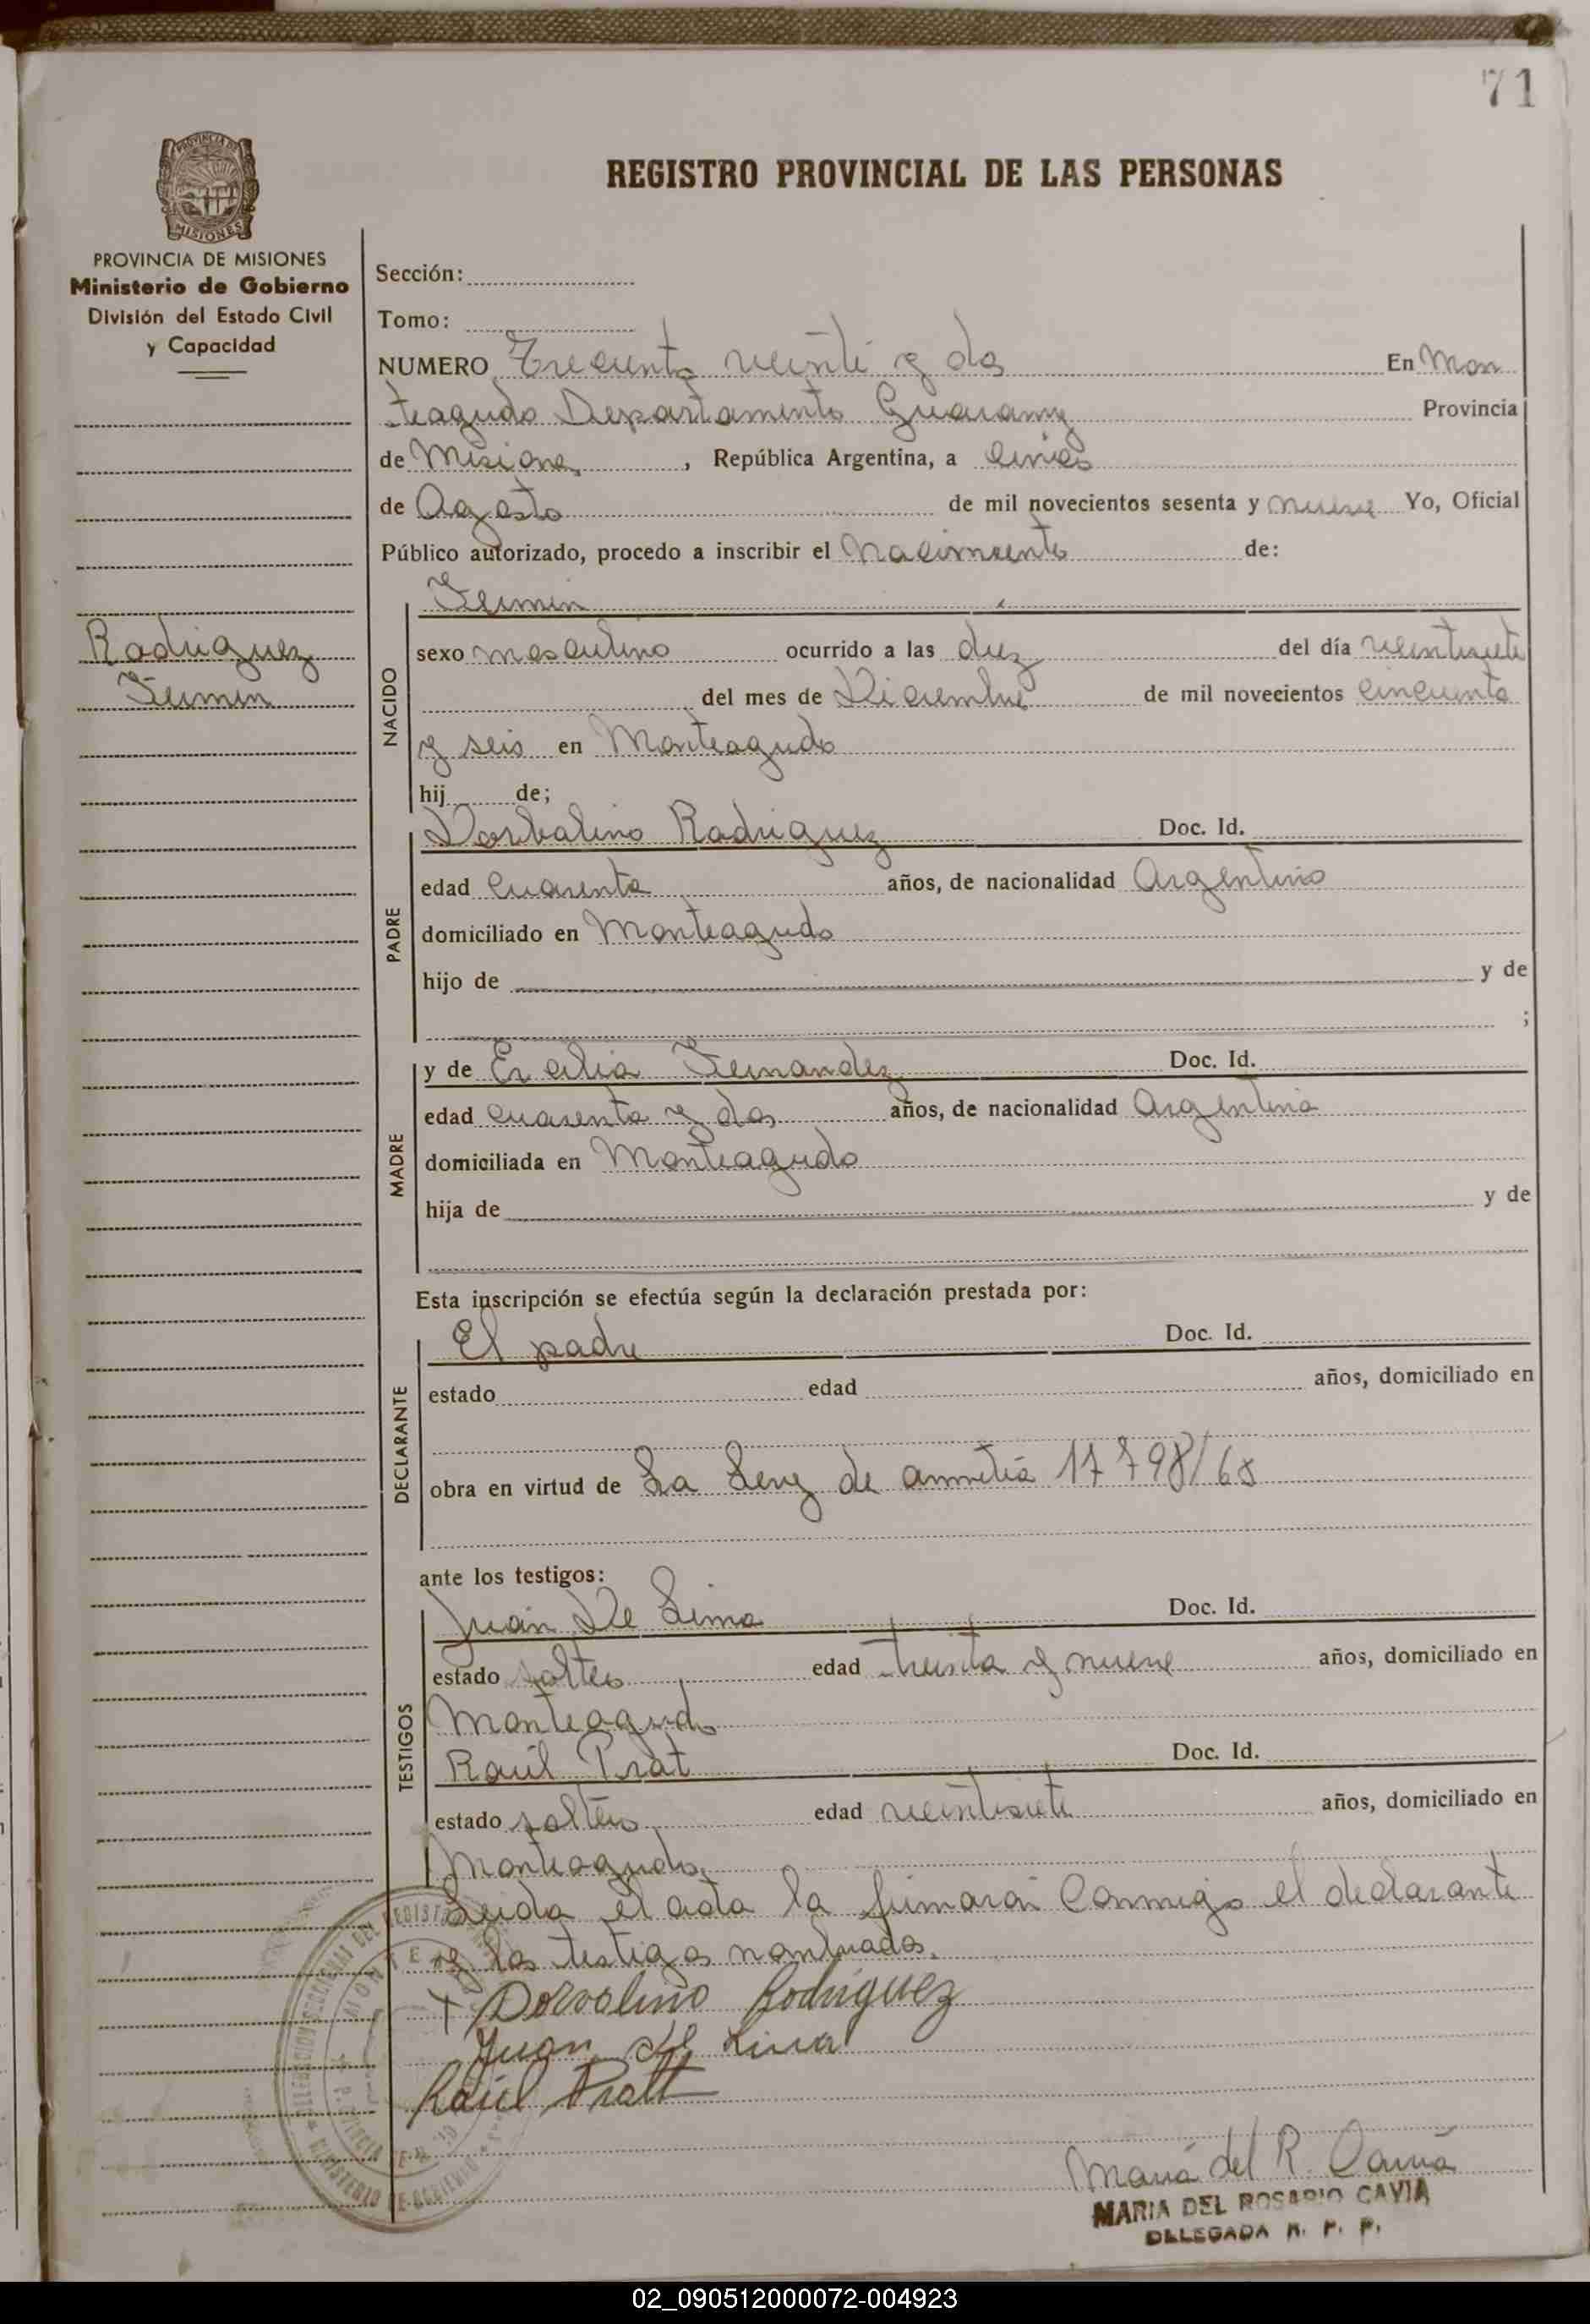 71
PROVINCIA DE
MISIONES
REGISTRO PROVINCIAL DE LAS PERSONAS
PROVINCIA DE MISIONES
Ministerio de Gobierno
División del Estado Civil
y Capacidad
Rodriguez
Fermin
Sección:
Tomo:
NUMERO Trecientos veinte y dos En Mon
teagudo Departamento Guarany Provincia
de Misiones, República Argentina, a cinco
de Agosto de mil novecientos sesenta y nueve Yo, Oficial
Público autorizado, procedo a inscribir el Nacimiento de:
Fermin
NACIDO
sexo masculino ocurrido a las diez del día veintisiete
del mes de Diciembre de mil novecientos cincuenta
y seis en Monteagudo
hij de;
Dorbalino Rodriguez Doc. Id.
PADRE
edad cuarenta años, de nacionalidad Argentino
domiciliado en Monteagudo
hijo de y de
;
y de Ercilia Fernandez Doc. Id.
MADRE
edad cuarenta y dos años, de nacionalidad Argentina
domiciliada en Monteagudo
hija de y de
Esta inscripción se efectúa según la declaración prestada por:
El padre Doc. Id.
DECLARANTE
estado edad años, domiciliado en
obra en virtud de La Ley de 17798/68
ante los testigos:
Juan De Lima Doc. Id.
TESTIGOS
estado soltero edad treinta y nueve años, domiciliado en
Monteagudo
Raúl Prat Doc. Id.
estado soltero edad veintisiete años, domiciliado en
Monteagudo.
Leida el acta la firmarán conmigo el declarante
y los testigos nombrados.
Dorvalino Rodriguez
Juan de Lima
Raúl Pratt
María del R. Cavia
MARIA DEL ROSARIO CAVIA
DELEGADA R. P. P.
02_090512000072-004923